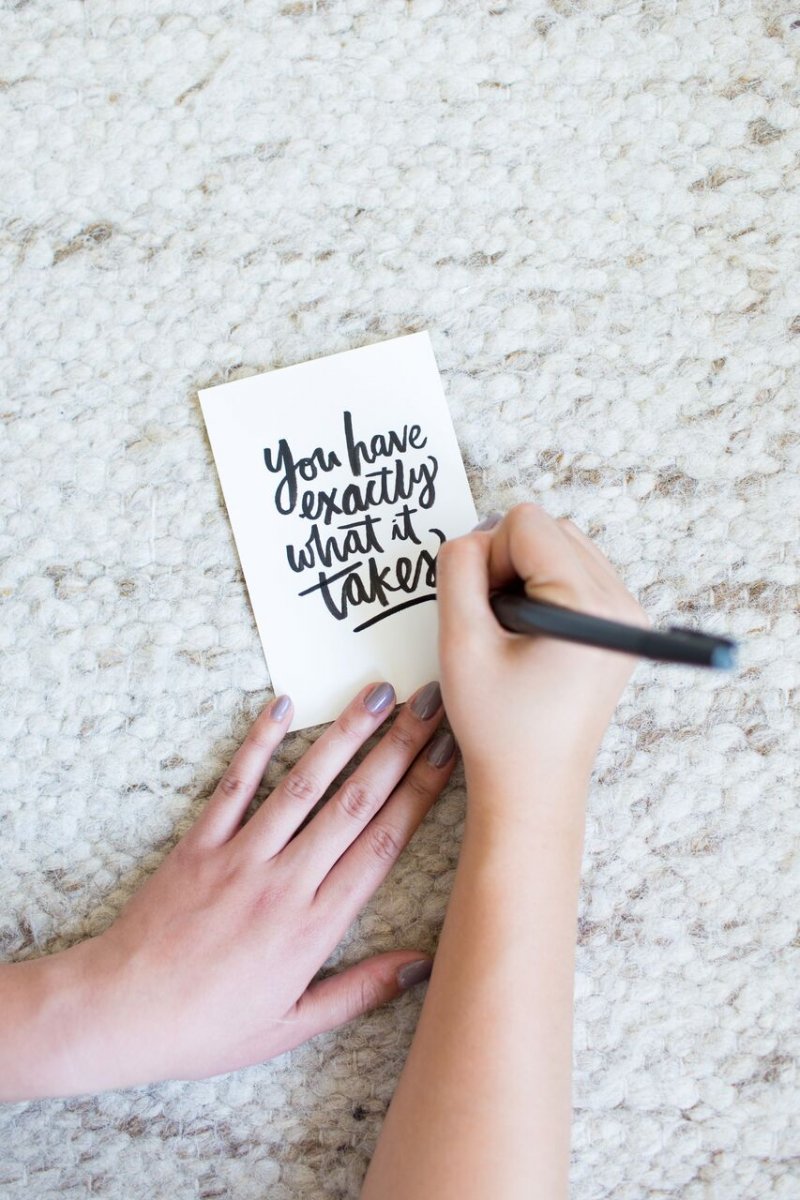 You have
exactly
what it
takes